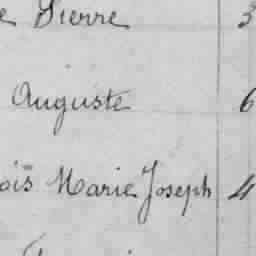 e Pierre 3
Auguste 6
ois Marie Joseph 4